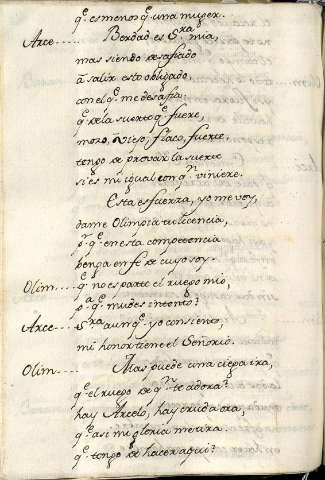 q.e es menos q.e una muger.
Arce..... Berdad es S.ra mia,
mas siendo desafiado
a salir esto obligado
con el q.e me desafia:
q.e de la suerte q.e fuere,
mozo, viejo, flaco, fuerte,
tengo de provar la suerte
si es mi igual con q.n viniere.
Esta es fuerza, yo me voy,
dame Olimpia tu licencia,
p.r q.e en esta competencia
benga en fe de cuyo soy.
Olim..... q.e no es parte el ruego mio,
p.a q.e mudes intento?
Arce..... S.ra aunq.e yo consiento,
mi honor tiene el Señorio.
Olim..... Mas puede una ciega ira,
q.e el ruego de q.n te adora?
hay Arcelo, hay cruda ora,
q.e asi mi gloria me tira.
q.e tengo de hacer aqui?